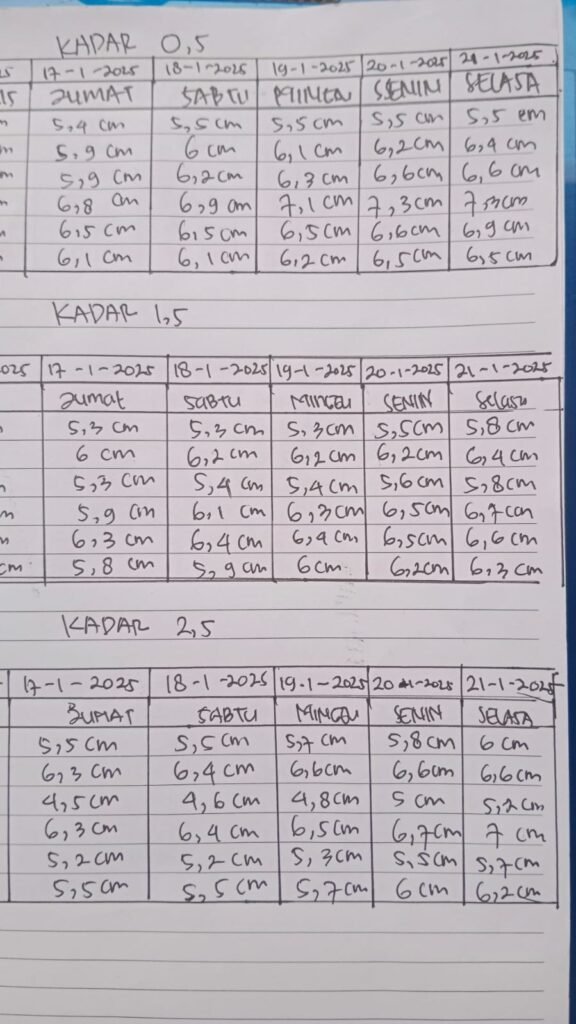 KADAR 0,5
25 17-1-2025 18-1-2025 19-1-2025 20-1-2025 21-1-2025
IS JUMAT SABTU MINGGU SENIN SELASA
m 5,4 cm 5,5 cm 5,5 cm 5,5 cm 5,5 cm
m 5,9 cm 6 cm 6,1 cm 6,2 cm 6,4 cm
m 5,9 cm 6,2 cm 6,3 cm 6,6 cm 6,6 cm
m 6,8 cm 6,9 cm 7,1 cm 7,3 cm 7,3 cm
m 6,5 cm 6,5 cm 6,5 cm 6,6 cm 6,9 cm
m 6,1 cm 6,1 cm 6,2 cm 6,5 cm 6,5 cm
KADAR 1,5
025 17-1-2025 18-1-2025 19-1-2025 20-1-2025 21-1-2025
Jumat SABTU MINGGU SENIN Selasa
5,3 cm 5,3 cm 5,3 cm 5,5 cm 5,8 cm
6 cm 6,2 cm 6,2 cm 6,2 cm 6,4 cm
m 5,3 cm 5,4 cm 5,4 cm 5,6 cm 5,8 cm
m 5,9 cm 6,1 cm 6,3 cm 6,5 cm 6,7 cm
m 6,3 cm 6,4 cm 6,4 cm 6,5 cm 6,6 cm
cm 5,8 cm 5,9 cm 6 cm 6,2 cm 6,3 cm
KADAR 2,5
17-1-2025 18-1-2025 19-1-2025 20-1-2025 21-1-2025
JUMAT SABTU MINGGU SENIN SELASA
5,5 cm 5,5 cm 5,7 cm 5,8 cm 6 cm
6,3 cm 6,4 cm 6,6 cm 6,6 cm 6,6 cm
4,5 cm 4,6 cm 4,8 cm 5 cm 5,2 cm
6,3 cm 6,4 cm 6,5 cm 6,7 cm 7 cm
5,2 cm 5,2 cm 5,3 cm 5,5 cm 5,7 cm
5,5 cm 5,5 cm 5,7 cm 6 cm 6,2 cm